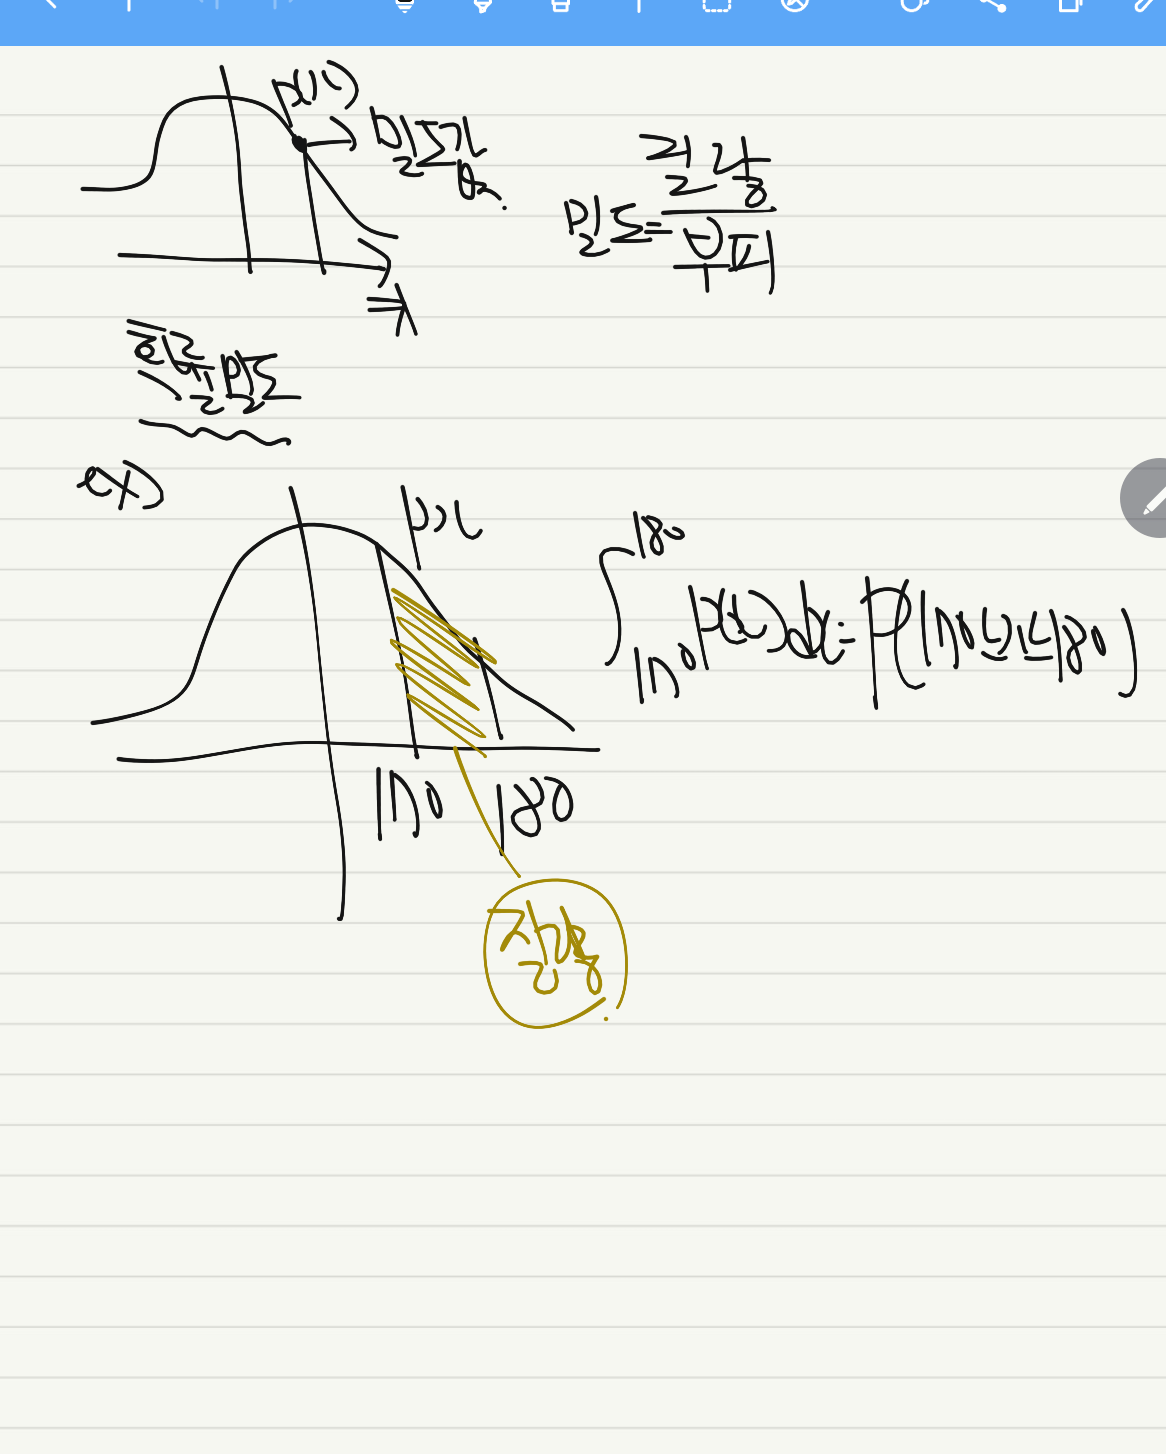 p(x)
밀도값
밀도 = 질량 / 부피
확률밀도
ex)
p(x)
170
180
∫₁₇₀¹⁸⁰ p(x)dx = P(170≤x≤180)
질량